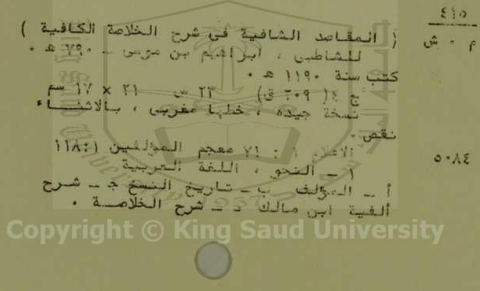 ٤١٥
م ٠ ش
( المقاصد الشافية في شرح الخلاصة الكافية )
للشاطبي ، ابراهيم بن موسى - ٧٩٠ هـ ٠
كتب سنة ١١٩٠ هـ ٠
ج ٤ ( ٢٠٩ ق ) ٢٣ س ٢١ × ١٧ سم
نسخة جيده ، خطها مغربي ، بالاثناء
نقص ٠
٥٠٨٤
الاعلام ١ : ٧١ معجم المؤلفين ١ : ١١٨
١ - النحو ، اللغة العربية
أ - المؤلف ب - تاريخ النسخ ج - شرح
ألفية ابن مالك د - شرح الخلاصة ٠
Copyright © King Saud University